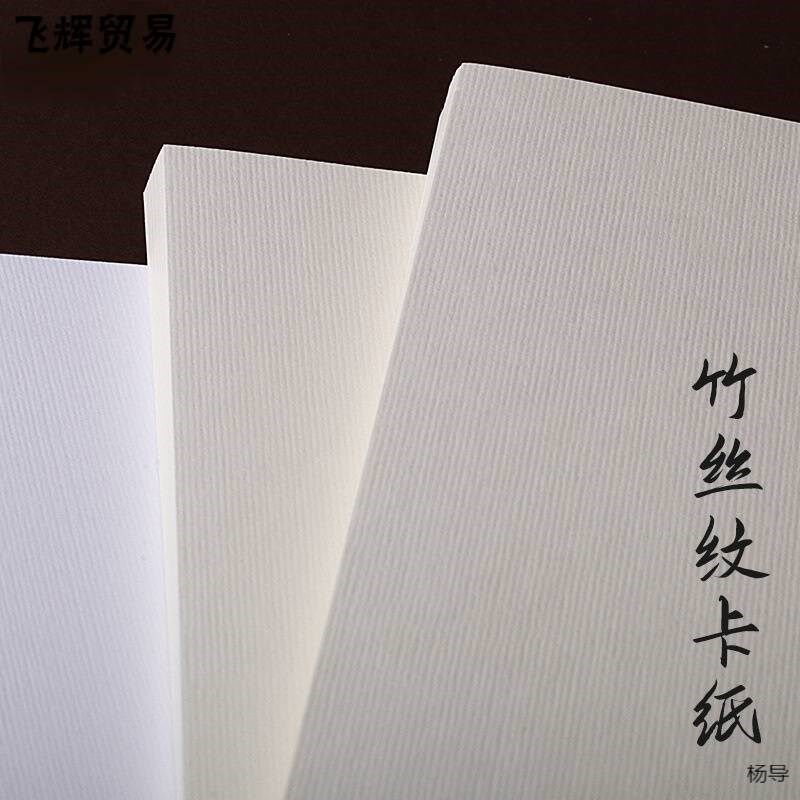 飞辉贸易
竹丝纹卡纸
杨导